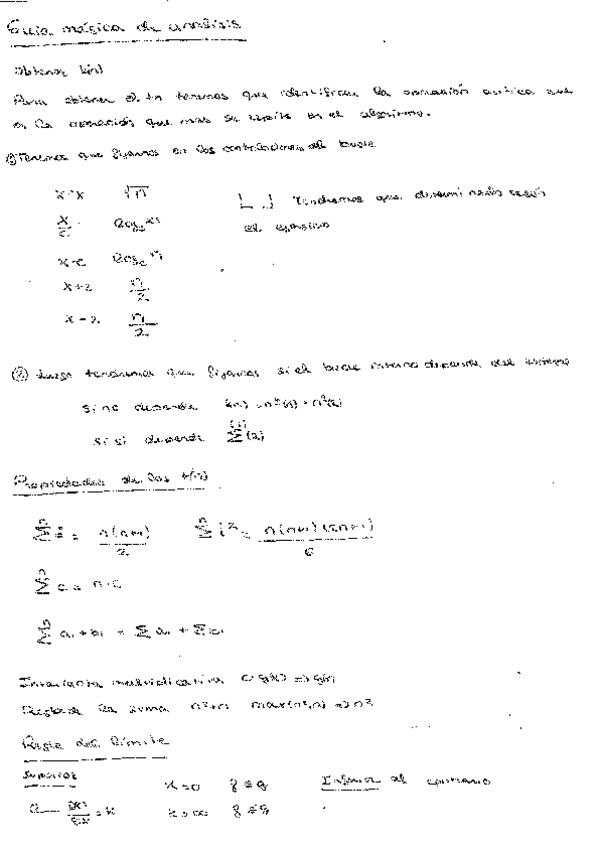 Guia mágica de análisis
Obtener t(n)
Para obtener el t.n tenemos que identificar la operación critica que
es la operación que mas se repite en el algoritmo.
① Tenemos que fijarnos en los controladores del bucle
x·x √n
x/c log_c n
x·c log_c n ⌊ ⌋ Tendremos que
x+2 n/2 el ejercicio
x-2 n/2
② Luego tendremos que fijarnos si el bucle interno depende del externo
si no depende
si si depende Σ(2)
Propiedades de los t(n)
Σ i = n(n+1)/2 Σ i² = n(n+1)(2n+1)/6
Σ c = n·c
Σ ai + bi = Σ ai + Σ bi
multiplicativa
Regla de la suma n²+n max(n²,n) => n²
Regla del límite
Superior x=0 Inferior al contrario
x=∞